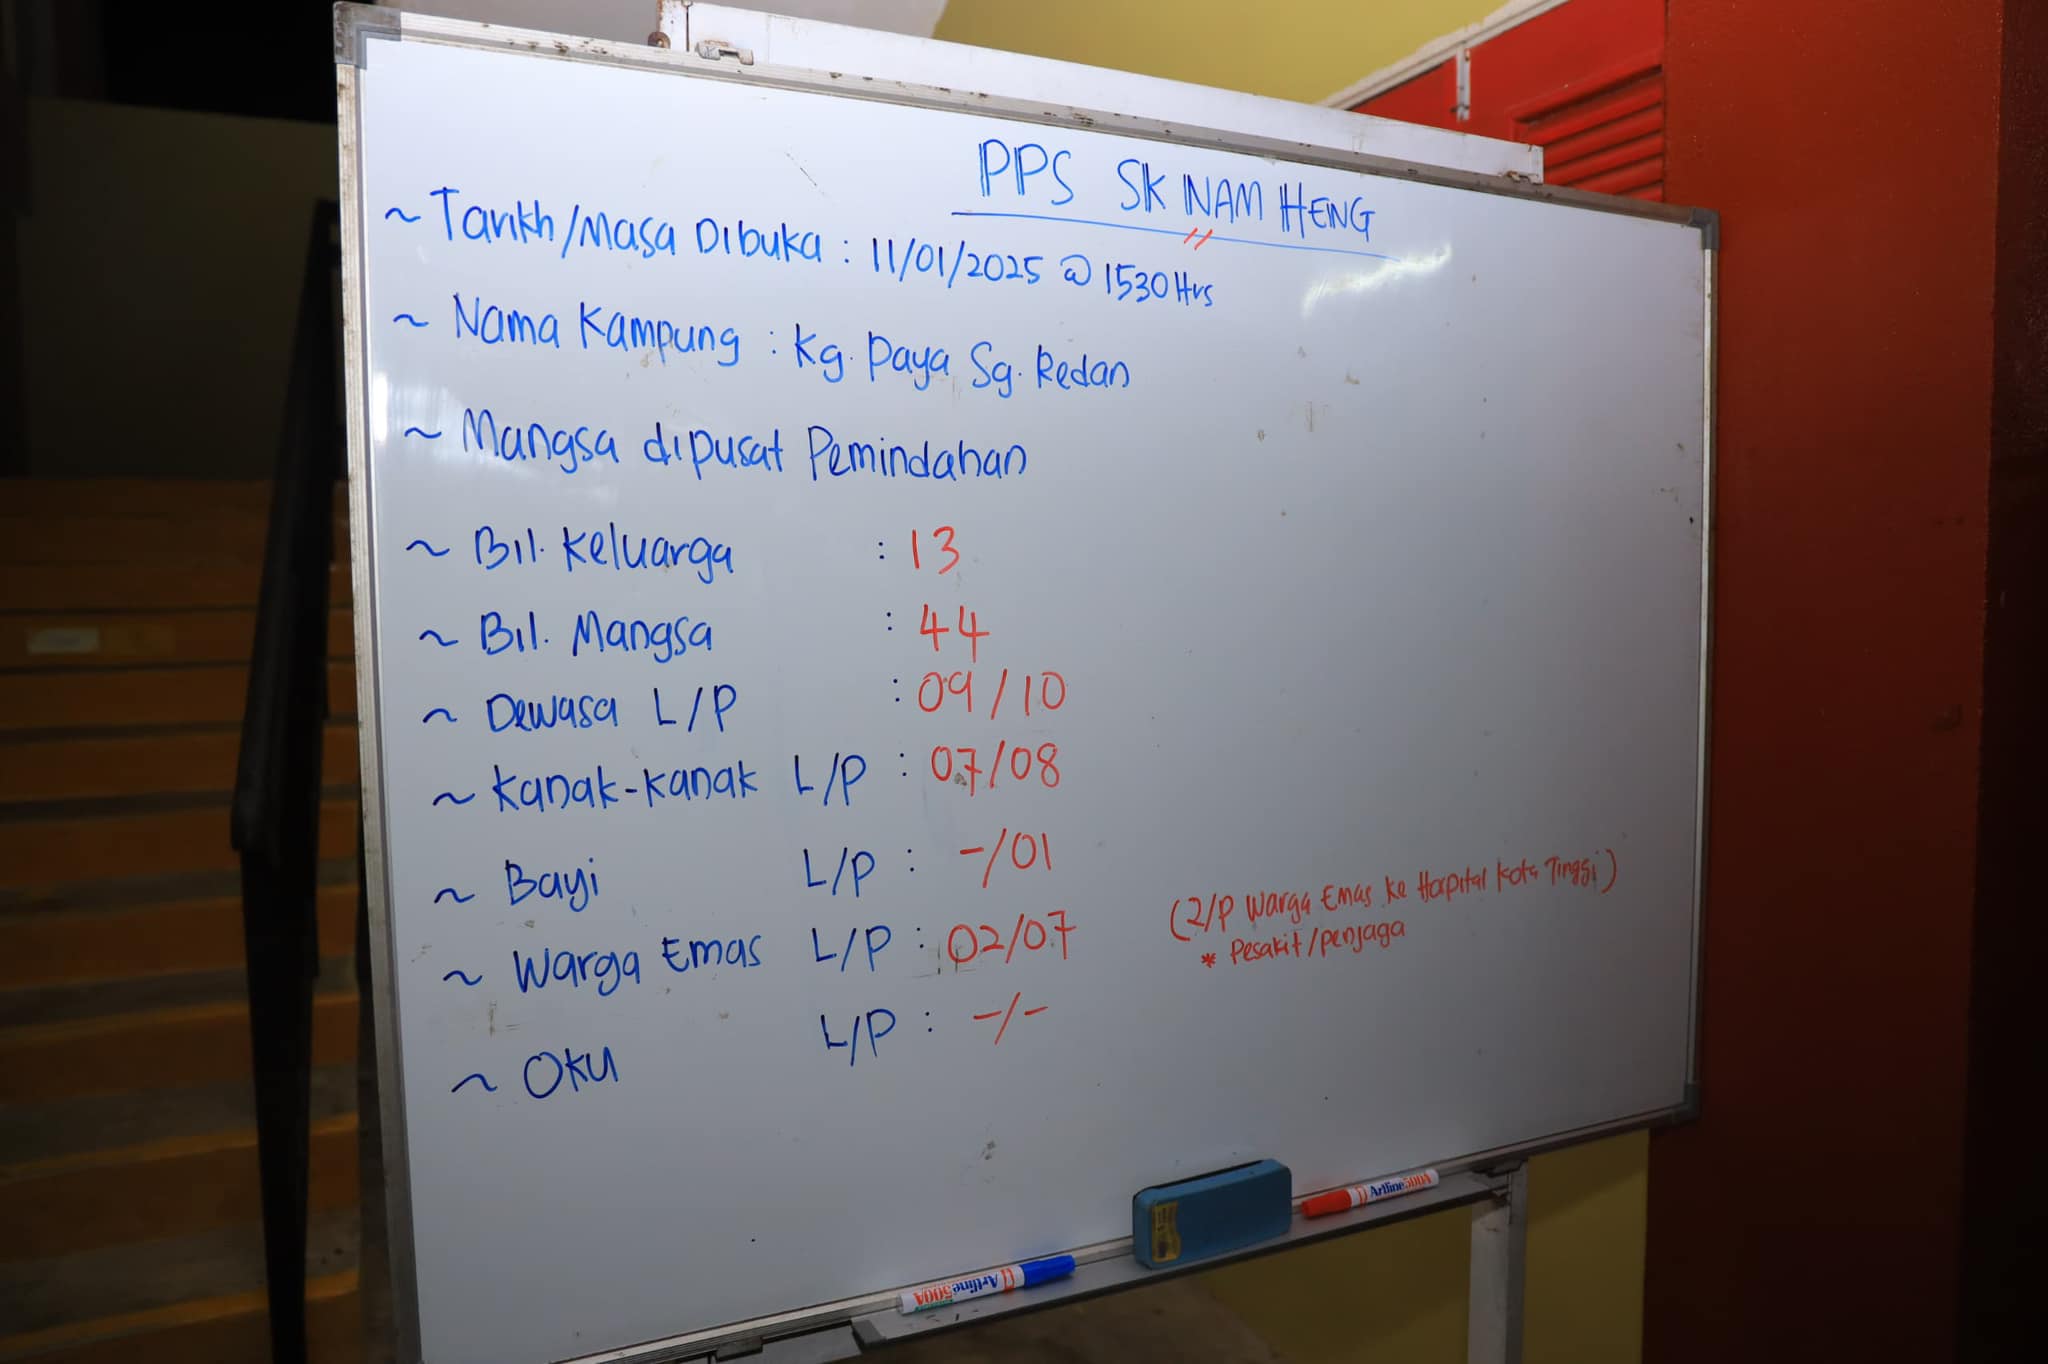 PPS SK NAM HENG
~ Tarikh/Masa Dibuka : 11/01/2025 @ 1530Hrs
~ Nama Kampung : Kg. Paya Sg. Redan
~ Mangsa dipusat Pemindahan
~ Bil. Keluarga : 13
~ Bil. Mangsa : 44
~ Dewasa L/P : 09/10
~ Kanak-Kanak L/P : 07/08
~ Bayi L/P : -/01
~ Warga Emas L/P : 02/07 (2/P Warga Emas ke Hospital Kota Tinggi)
* Pesakit/penjaga
~ OKU L/P : -/-
Artline 500A
Artline 500A